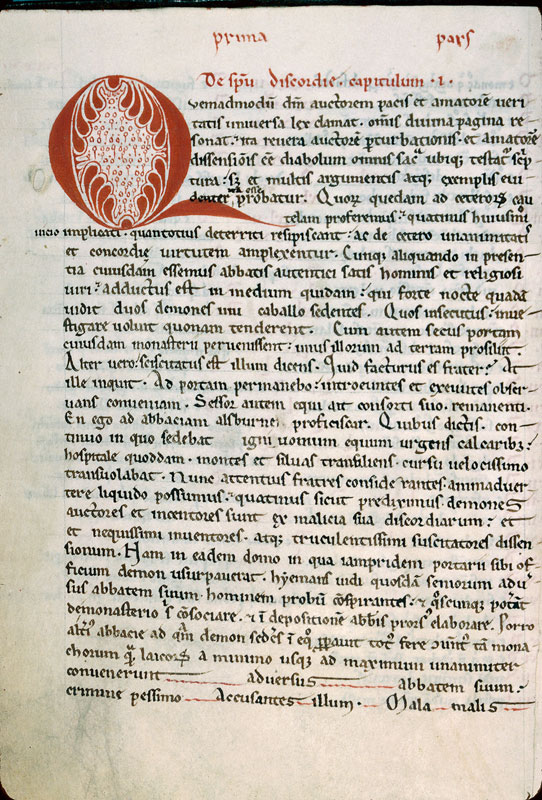 prima pars
De spu discordie capitulum · i ·
Quemadmodu dm auctorem pacis et amatore veri
tatis universa lex clamat · omnis divina pagina re
sonat · ita revera auctore pturbationis · et amatore
dissensionis ee diabolum omnis sac ubiq; testat scp
tura · sz et multis argumentis atq; exemplis evi
denter vera esse probatur · Quorz quedam ad ceterorz cau
telam proferemus · quatinus huiusmoi
vicio implicati · quantotius deterriti resipiscant · ac de cetero unanimitatis
et concordie virtutem amplexentur · Cumq; aliquando in presen
tia cuiusdam essemus abbatis autentici satis hominis et religiosi
viri · adductus est in medium quidam · qui forte nocte quada
vidit duos demones uni caballo sedentes · Quos insecutus · inve
stigare voluit quonam tenderent · Cum autem secus portam
cuiusdam monasterii pervenissent · unus illorum ad terram prosiliit ·
Alter vero · sciscitatus est illum dicens · Quid facturus es frater? At
ille inquit · Ad portam permanebo · introeuntes et exeuntes obser
vans conveniam · Sessor autem equi ait consorti suo · remanenti ·
En ego ad abbaciam alsburne proficiscar · Quibus dictis · con
tinuo in quo sedebat ignivomum equum urgens calcaribz ·
hospitale quoddam · montes et silvas transiliens · cursu velocissimo
transvolabat · Nunc attentius fratres considerantes · animadver
tere liquido possumus · quatinus sicut prediximus · demones
auctores et incentores sunt ex malicia sua discordiarum · et
et nequissimi inventores · atq; truculentissimi suscitatores dissen
sionum · Nam in eadem domo in qua iampridem portarii sibi of
ficium demon usurpaverat · hyemans vidi quosda seniorum adv
sus abbatem suum · hominem probu cospirantes · & qscunq; potat
demonasterio s cosociare · & i depositione abbis prors elaborare · Porro
alti abbacie ad qm demon sedes i eq ppavit toti fere ovnt ta mona
chorum qa laicorz a minimo usqz ad maximum unanimiter
convenerunt adversus abbatem suum ·
crimine pessimo Accusantes illum · Mala malis